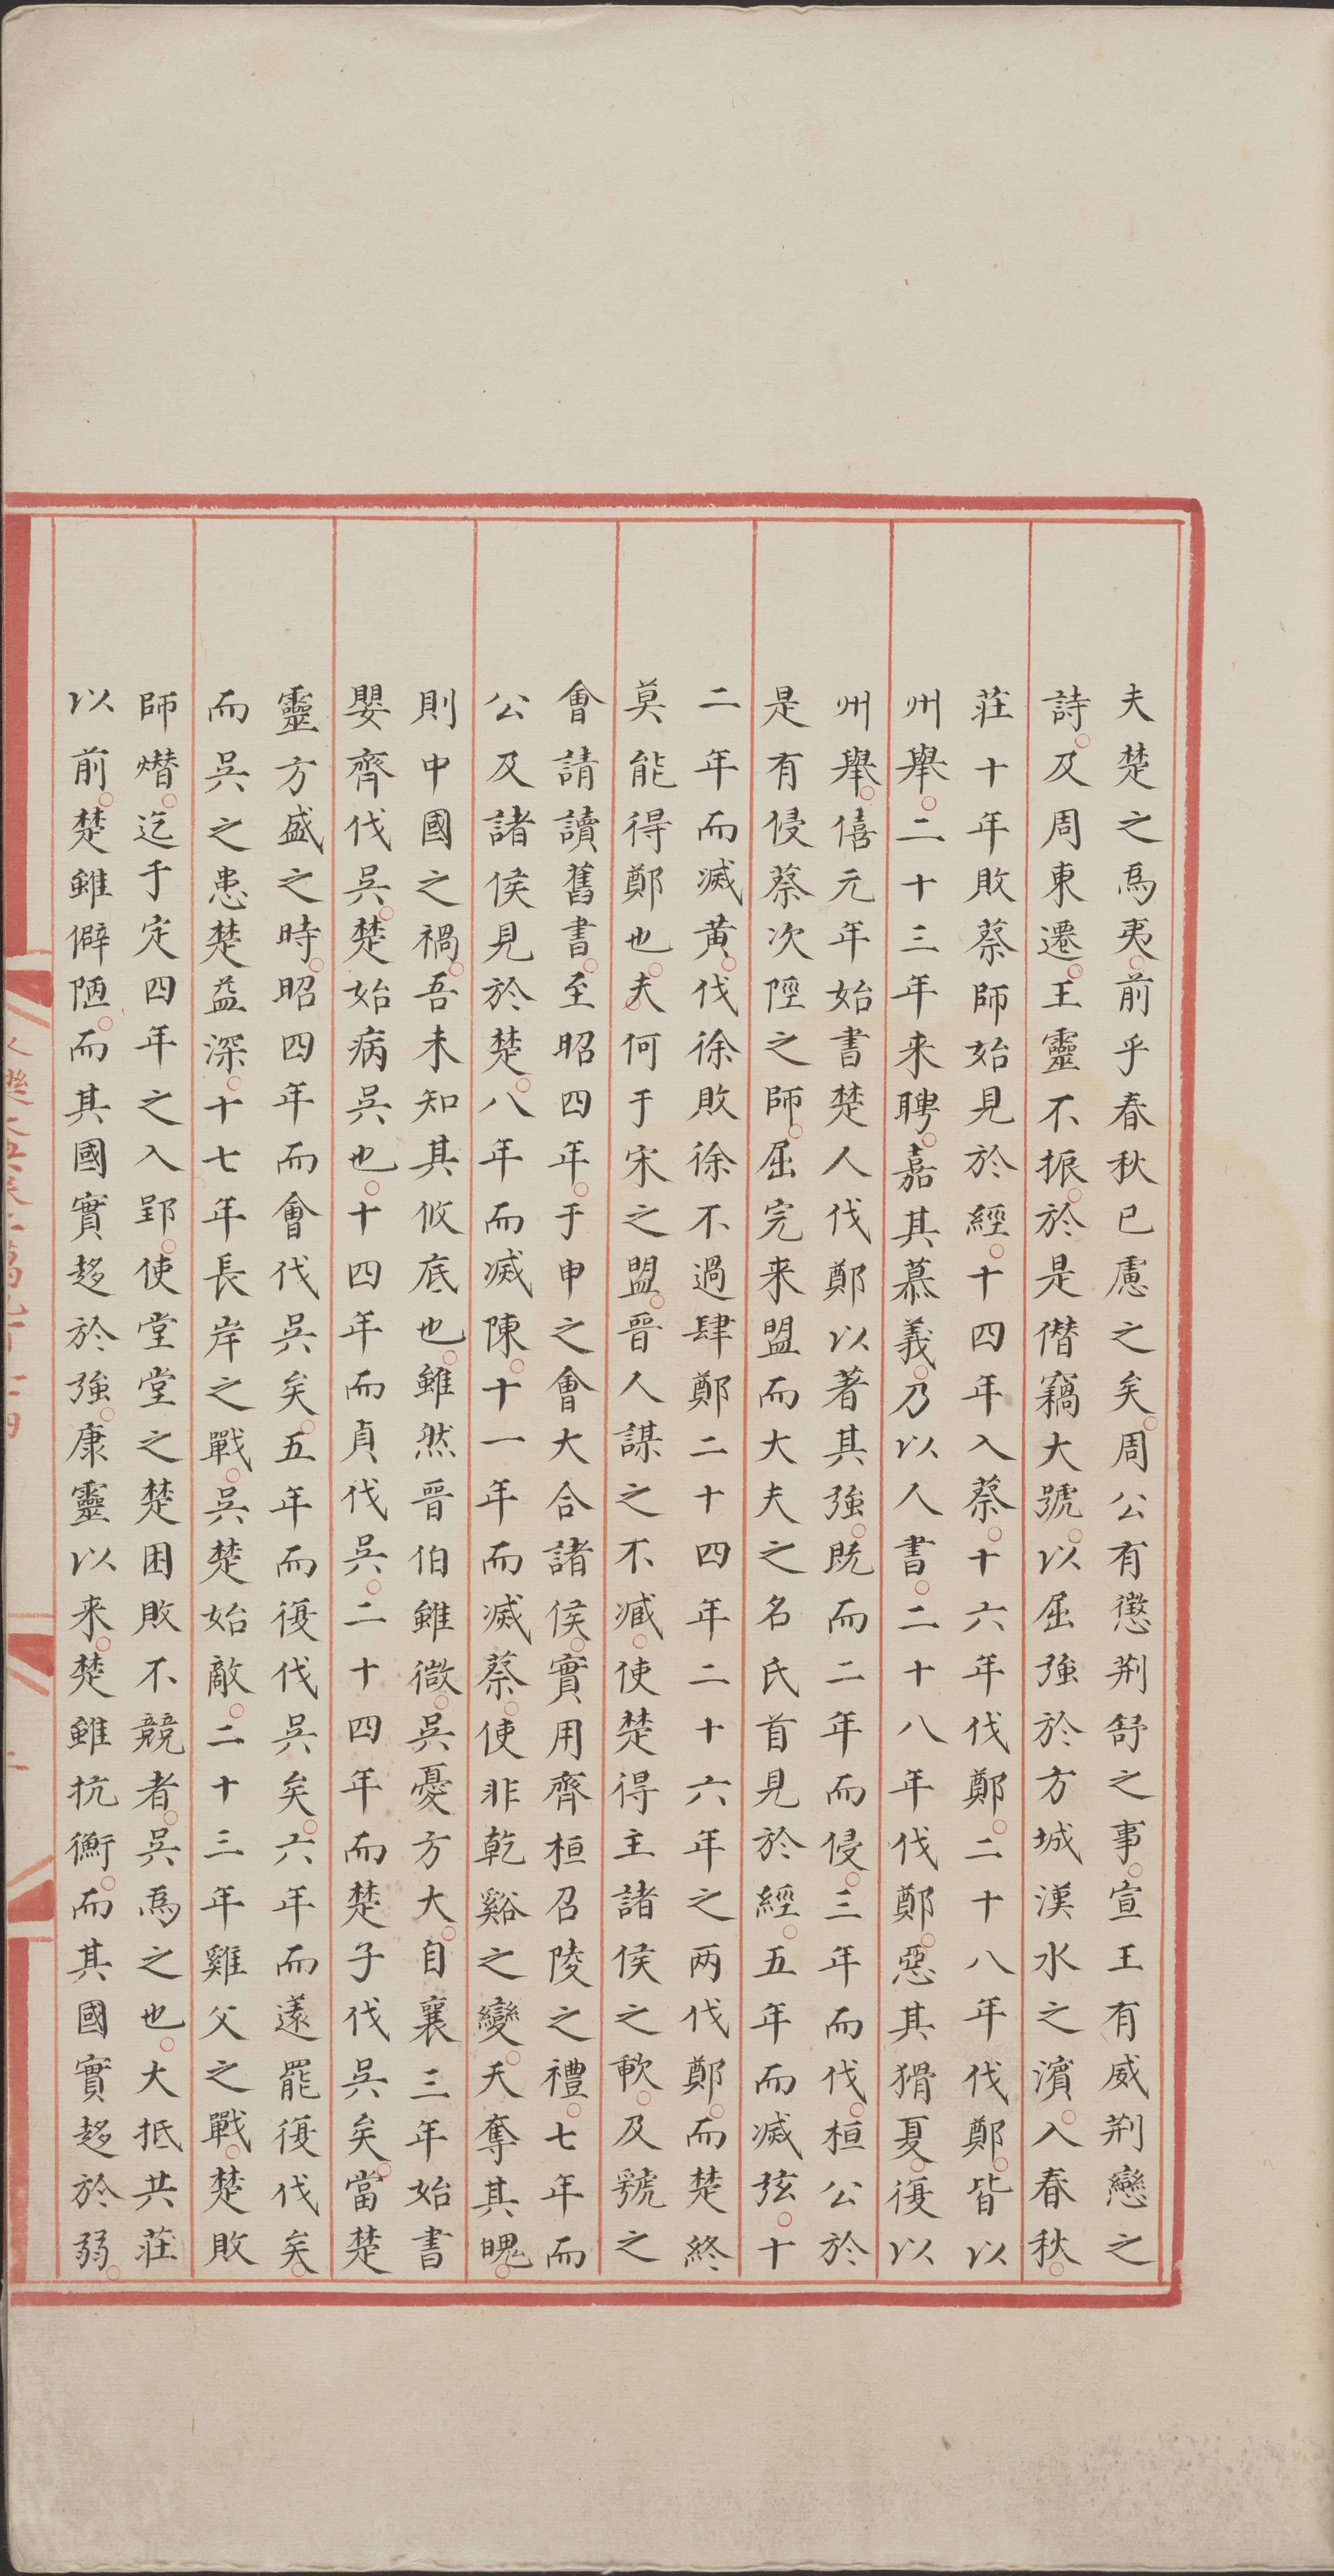 夫楚之爲夷前乎春秋已慮之矣周公有懲荆舒之事宣王有威荆蠻之
詩及周東遷王靈不振於是僭竊大號以屈强於方城漢水之濱入春秋
莊十年敗蔡師始見於經十四年入蔡十六年伐鄭二十八年伐鄭皆以
州舉二十三年来聘嘉其慕義乃以人書二十八年伐鄭惡其猾夏復以
州舉僖元年始書楚人伐鄭以著其强既而二年而侵三年而伐桓公於
是有侵蔡次陘之師屈完来盟而大夫之名氏首見於經五年而滅弦十
二年而滅黄伐徐敗徐不過肆鄭二十四年二十六年之两伐鄭而楚終
莫能得鄭也夫何于宋之盟晉人謀之不臧使楚得主諸侯之軟及虢之
會請讀舊書至昭四年于申之會大合諸侯實用齊桓召陵之禮七年而
公及諸侯見於楚八年而滅陳十一年而滅蔡使非乾谿之變天奪其䰟
則中國之禍吾未知其攸底也雖然晉伯雖微吳憂方大自襄三年始書
嬰齊伐吳楚始病吳也十四年而貞伐吳二十四年而楚子伐吳矣當楚
靈方盛之時昭四年而會伐吳矣五年而復伐吳矣六年而薳罷復伐矣
而吳之患楚益深十七年長岸之戰吳楚始敵二十三年雞父之戰楚敗
師熸迄于定四年之入郢使堂堂之楚困敗不競者吳爲之也大抵共莊
以前楚雖僻陋而其國實趍於强康靈以来楚雖抗衡而其國實趍於弱